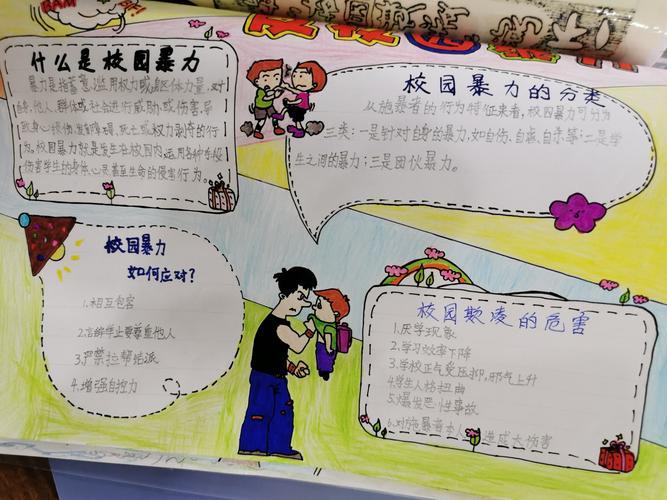 BAM
什么是校园暴力
暴力是指蓄意滥用权力或躯体力量,对
自身、他人、群体或社会进行威胁或伤害,导
致身心损伤、发育障碍、死亡或权力剥夺的行
为。校园暴力就是发生在校园内,运用各种手段
伤害学生的身体、心灵甚至生命的侵害行为。
校园暴力的分类
从施暴者的行为特征来看,校园暴力可分为
三类:一是针对自身的暴力,如自伤、自虐、自杀等;二是学
生之间的暴力;三是团伙暴力。
校园暴力
如何应对?
1.相互包容
2.言辞举止要尊重他人
3.严禁拉帮结派
4.增强自控力
校园欺凌的危害
1.厌学现象
2.学习效率下降
3.学校正气受压抑,邪气上升
4.学生人格扭曲
5.爆发恶性事故
6.对施暴者本人 造成大伤害